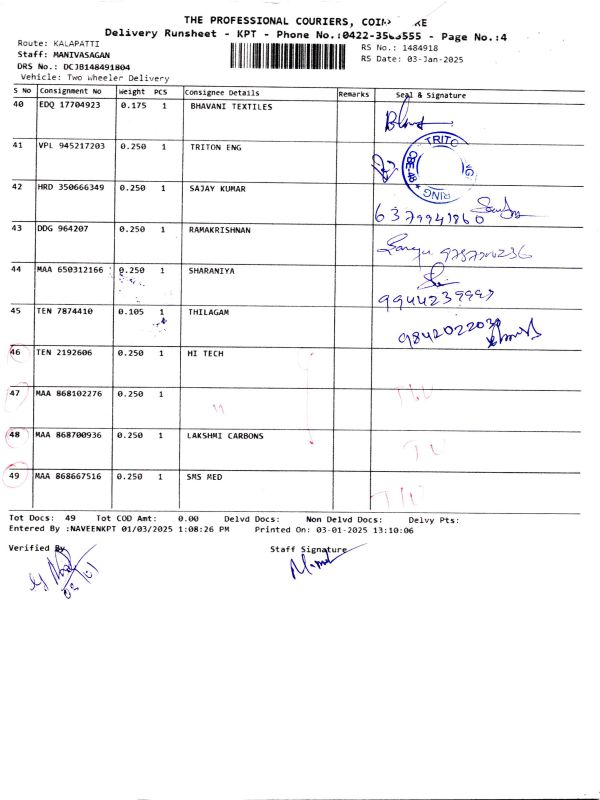 THE PROFESSIONAL COURIERS,
Delivery Runsheet - KPT - Phone No.:0422-35 555 - Page No.:4
Route: KALAPATTI RS No.: 1484918
Staff: MANIVASAGAN RS Date: 03-Jan-2025
DRS No.: DCJB148491804
Vehicle: Two Wheeler Delivery
S No Consignment No Weight PCS Consignee Details Remarks Seal & Signature
40 EDQ 17704923 0.175 1 BHAVANI TEXTILES
41 VPL 945217203 0.250 1 TRITON ENG TRITO CBE-48
42 HRD 350666349 0.250 1 SAJAY KUMAR 6379941860
43 DDG 964207 0.250 1 RAMAKRISHNAN
44 MAA 650312166 0.250 1 SHARANIYA
45 TEN 7874410 0.105 1 THILAGAM
46 TEN 2192606 0.250 1 HI TECH
47 MAA 868102276 0.250 1 "
48 MAA 868700936 0.250 1 LAKSHMI CARBONS
49 MAA 868667516 0.250 1 SMS MED
Tot Docs: 49 Tot COD Amt: 0.00 Delvd Docs: Non Delvd Docs: Delvy Pts:
Entered By :NAVEENKPT 01/03/2025 1:08:26 PM Printed On: 03-01-2025 13:10:06
Verified By Staff Signature